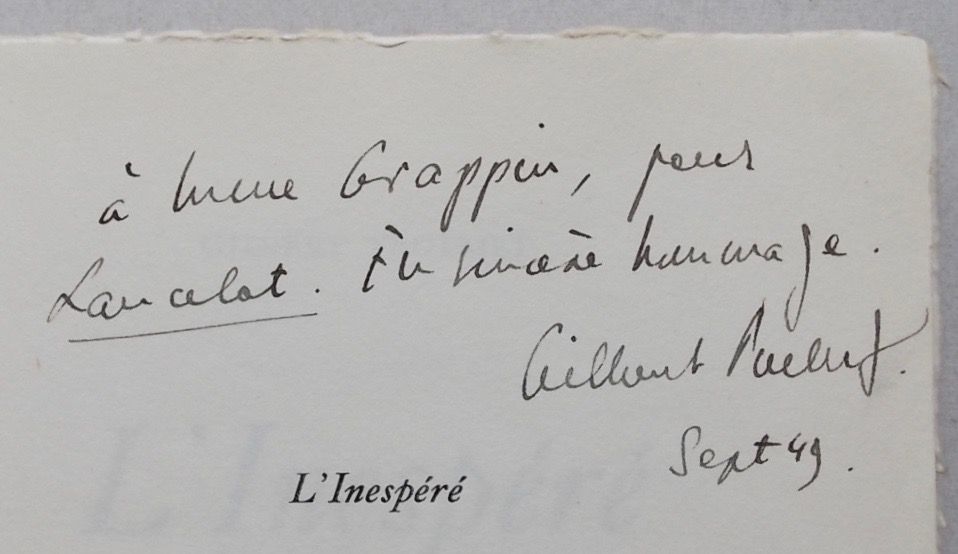 à Mme Grappin, pour
Lancelot. En sincère hommage.
Gilbert
Sept 49.
L'Inespéré